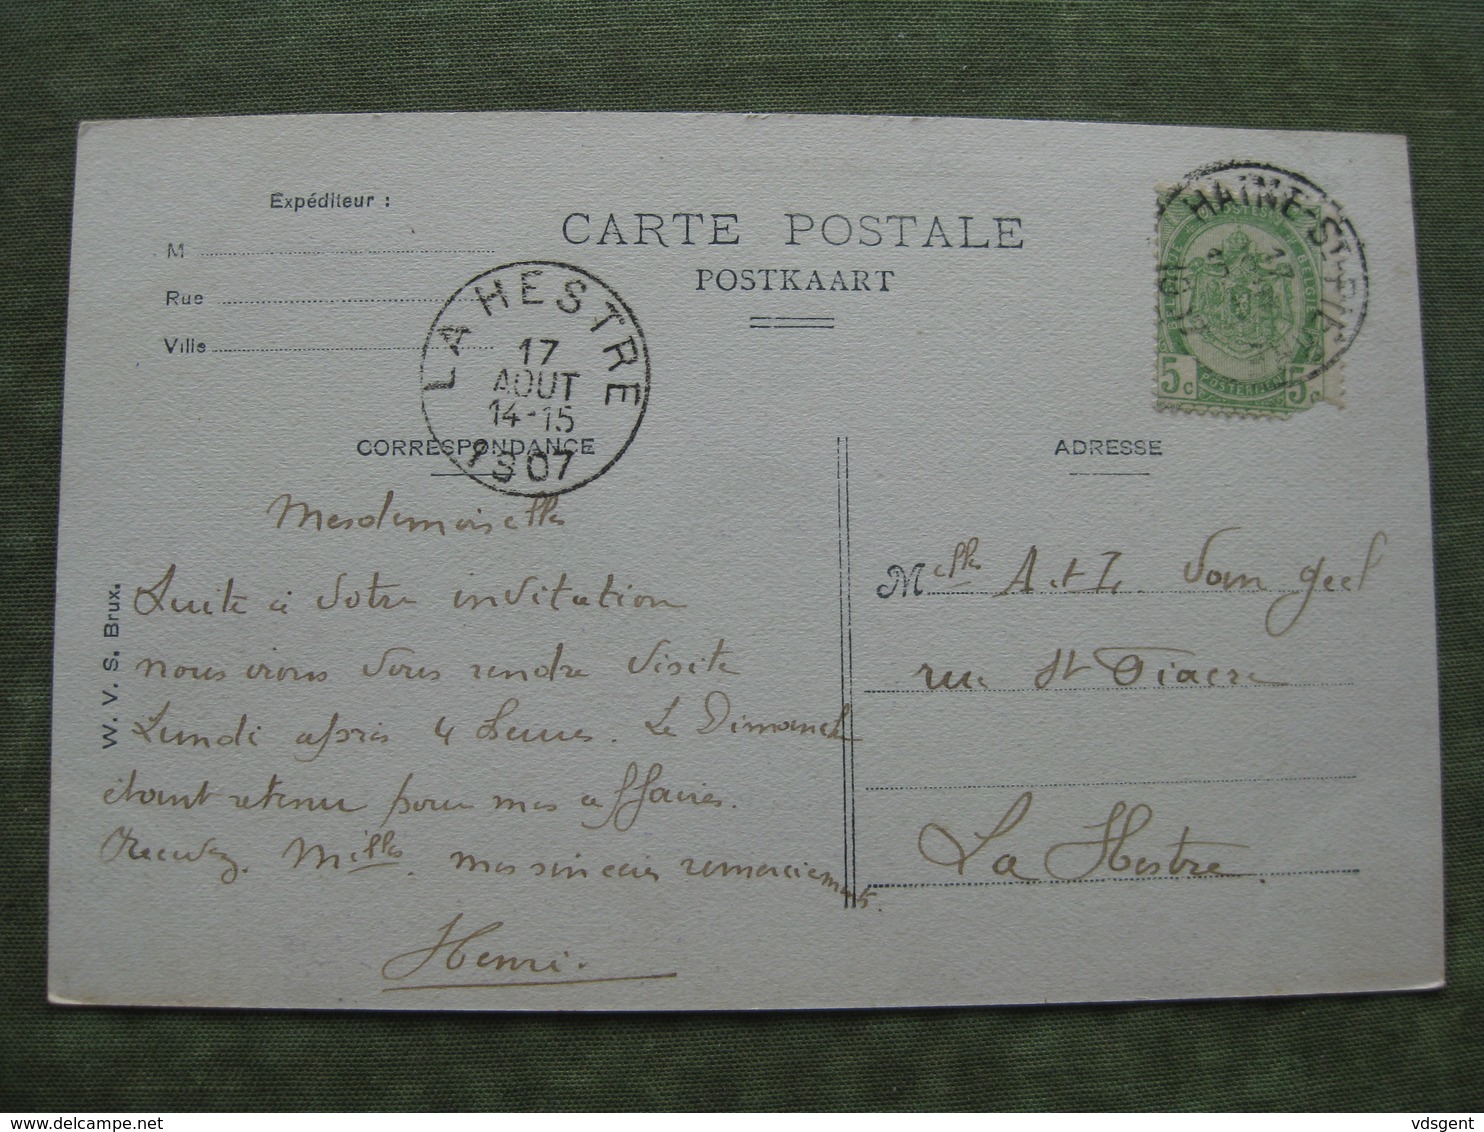 Expéditeur :
M
Rue
Ville
CARTE POSTALE
POSTKAART
LA HESTRE
17
AOUT
14-15
1907
HAINE-ST-P
5c 5c
CORRESPONDANCE
ADRESSE
W. V. S. Brux.
Mesdemoiselles
Suite à votre invitation
nous irons vous rendre visite
Lundi après 4 heures. Le Dimanche
étant retenu pour mes affaires.
Recevez. Milles. mes sincères remerciements.
Henri.
Melles A et Z. Van Geel
rue St Fiacre
La Hestre.
delcampe.net
vdsgent